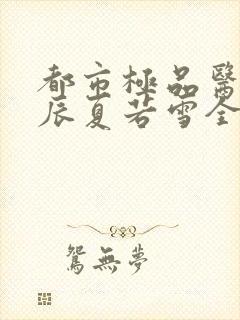 都市極品醫
辰夏若雪全
鴛無夢